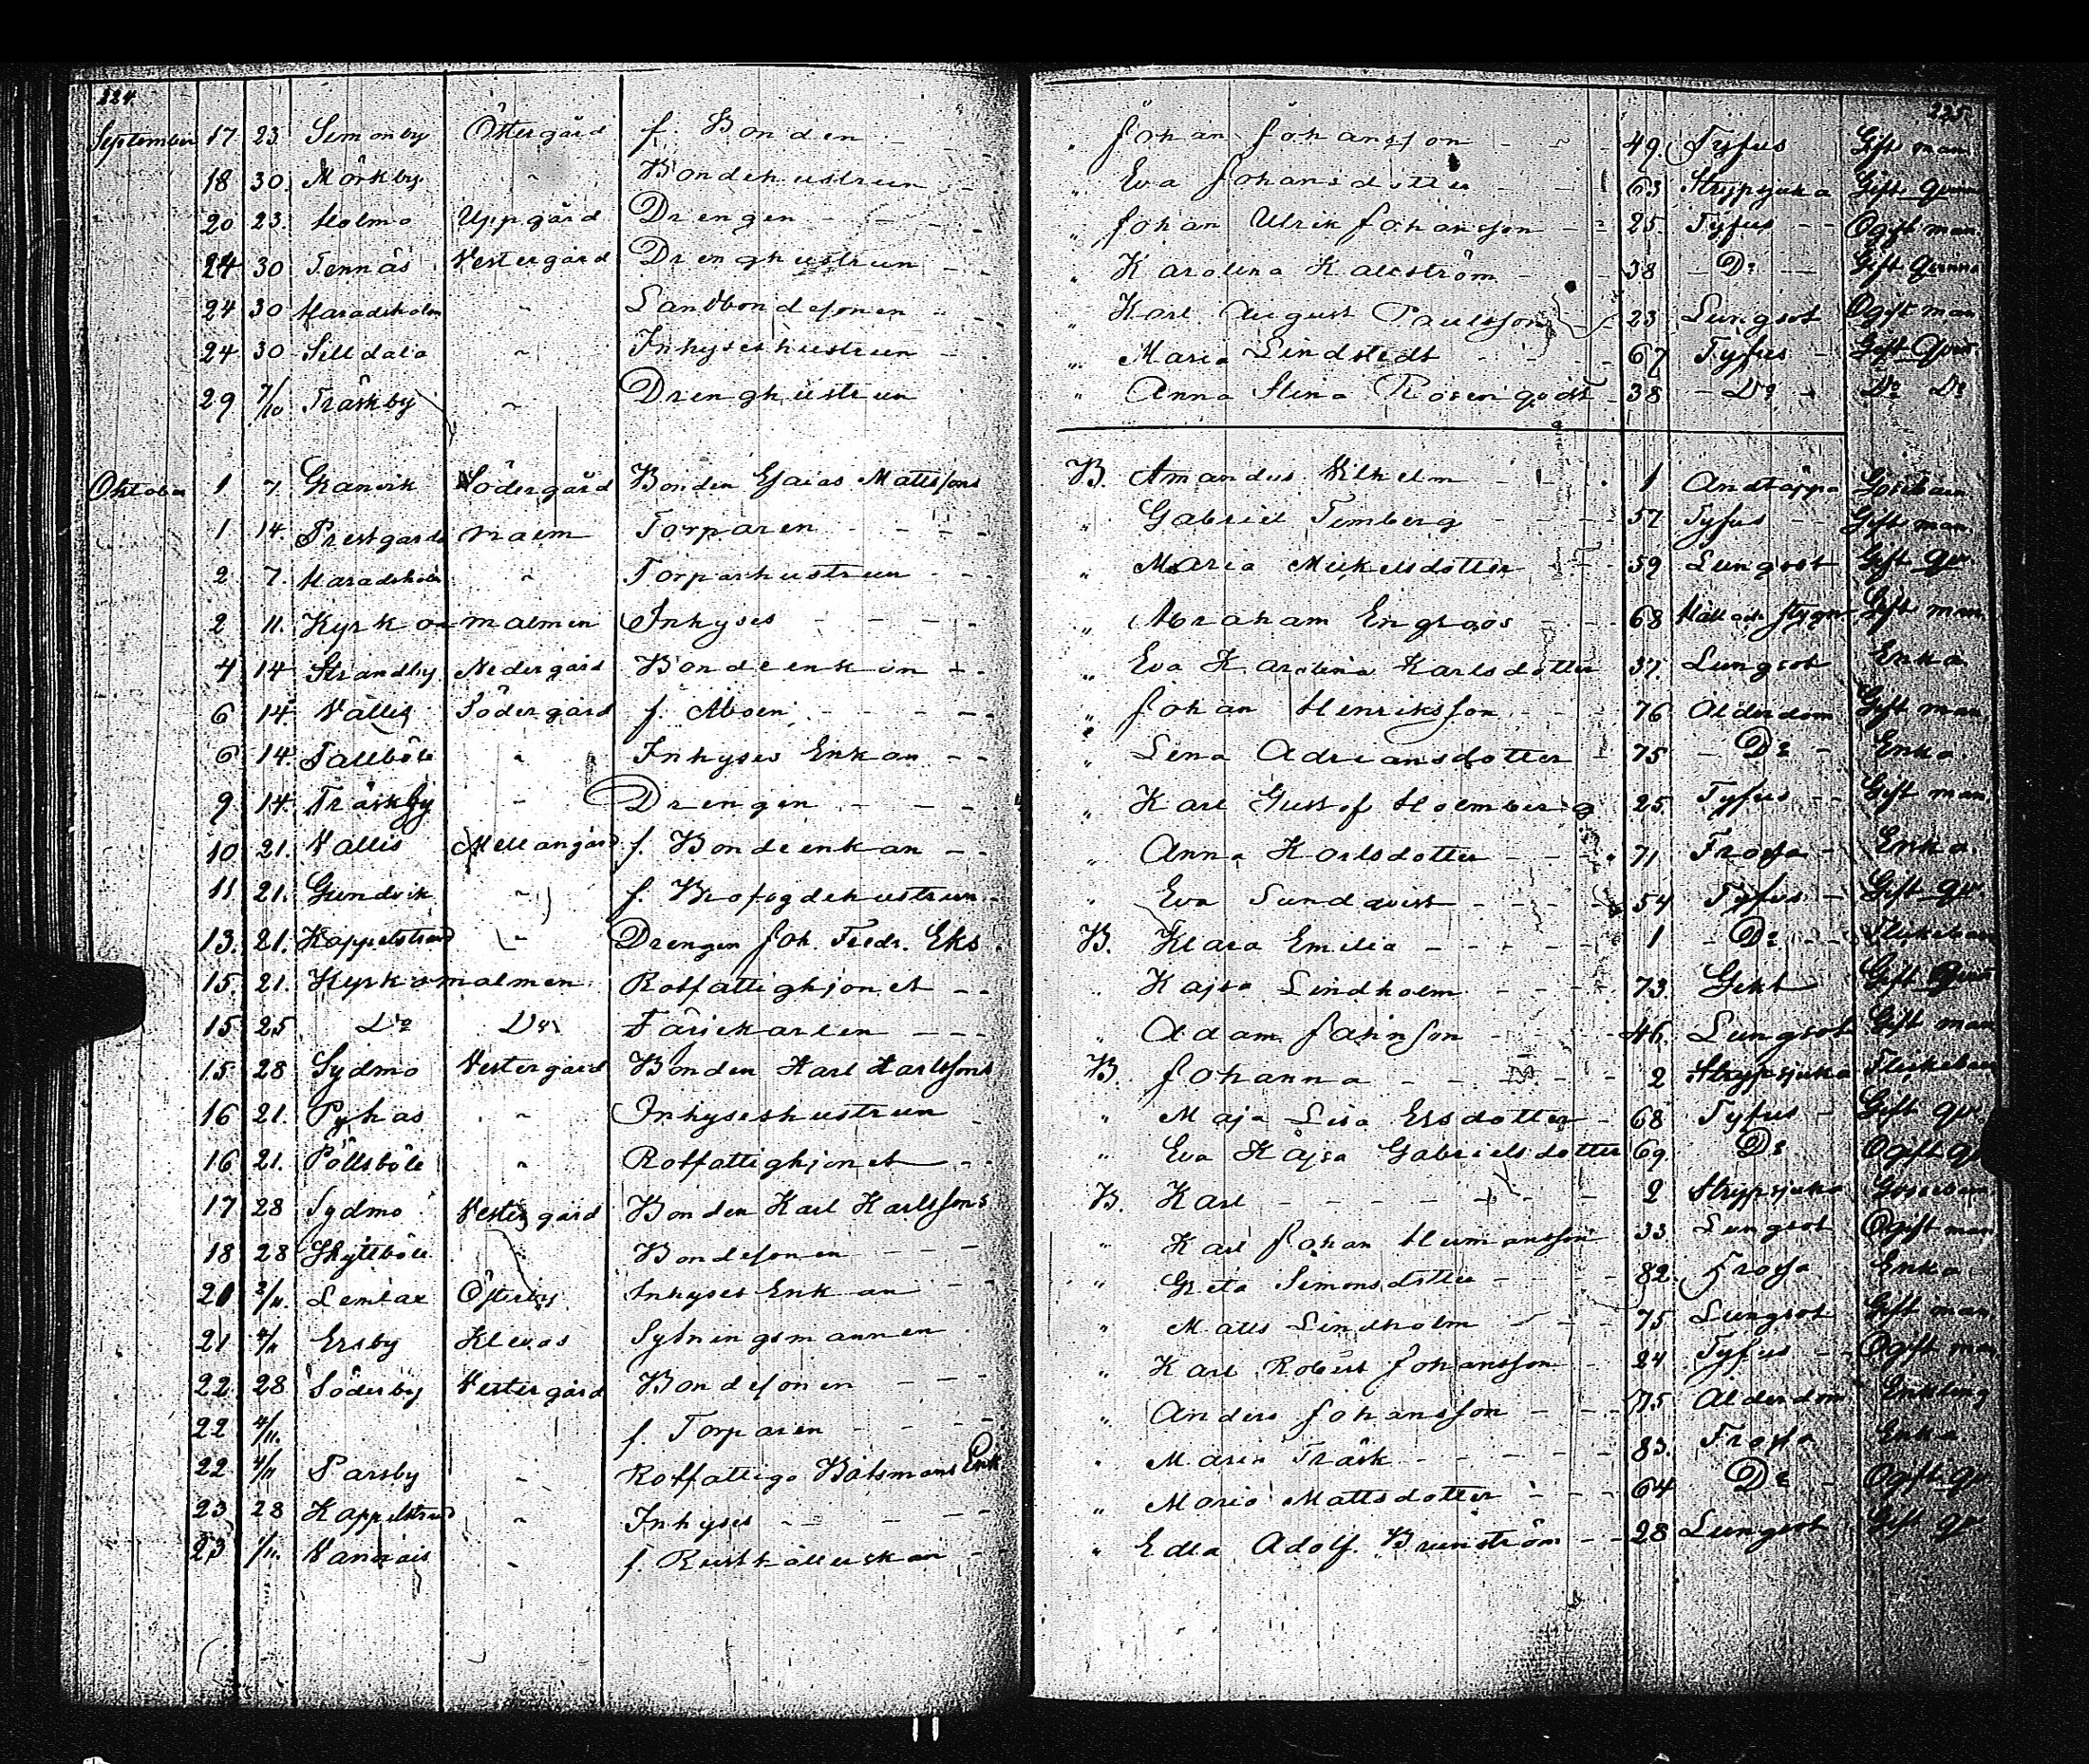 224. 225.
September 17 23. Simonby Östergård f. Bonden - - " Johan Johansson - - - 49. Tyfus Gift man.
18 30. Mörkby " Bondehustrun - - " Eva Johansdotter - - 63 Strypsjuka Gift qvinna
20 23. Holmo Uppgård Drengen - - - - " Johan Ulrik Johansson - - 25. Tyfus - - Ogift man.
24 30 Tennäs Vestergård Drenghustrun - - " Karolina Kallström - - 38 - Do - Gift Qvinna
24 30 Haradsholm " Landbondesonen - - " Karl August Paulsson - 23 Lungsot Ogift man
24 30 Silldala " Inhyseshustrun - " Maria Lindstedt - - - 67 Tyfus - Gift Qvin.
29 7/10 Träskby " Drenghustrun " Anna Stina Rosenqvist - 38 - Do - Do Do
Oktober 1 7. Granvik Södergård Bonden Esaias Mattssons B. Amandus Vilhelm - - - 1 Andtäppa Gossbarn
1 14. Prestgårds malm Torparen - - - - " Gabriel Timberg - - - 57 Tyfus - - Gift man.
2 7. Haradsholm " Torparhustrun - - " Maria Mickelsdotter - - 59 Lungsot Gift qv.
2 11. Kyrko malmen Inhyses - - - - " Abraham Engroos - - - 68 Håll och Stygn Gift man.
4 14 Strandby Nedergård Bondeenkan - - " Eva Karolina Karlsdotter 37. Lungsot Enka
6 14. Vallis Södergård f. Åboen - - - - " Johan Henriksson - - - 76 Ålderdom Gift man.
6 14. Tallböle " Inhyses Enkan - - " Lena Adriansdotter - 75 - Do - Enka
9 14. Träskby " Drengen - - - " Karl Gustaf Holmberg 25. Tyfus - - Gift man.
10 21. Vallis Mellangård f. Bondeenkan - - " Anna Karlsdotter - - - 71 Frossa - Enka
11 21. Gundvik " f. Brofogdehustrun. " Eva Sundqvist - - - - 54 Tyfus - Gift qv.
13. 21. Kappelstrand " Drengen Joh. Fredr. Eks B. Klara Emilia - - - - - 1 - Do - - Flickebarn
15. 21. Kyrkomalmen Rotfattighjonet - - " Kajsa Lindholm - - - - 73. Gikt Gift Qvin
15 25 Do Do Färjekarlen - - - " Adam Jahnson - - - - 46. Lungsot Gift man
15 28 Sydmo Vestergård Bonden Karl Karlssons B. Johanna - - - - - 2 Strypsjuka Flickebarn
16 21. Pyhas " Inhyseshustrun " Maja Lisa Ersdotter - 68 Tyfus - Gift qv.
16 21. Pöllsböle " Rotfattighjonet - - " Eva Kajsa Gabrielsdotter 69. Do Ogift qv
17 28 Sydmo Vestergård Bonden Karl Karlssons B. Karl - - - - - - - 2 Strypsjuka Gossebarn
18 28 Skyttböle Bondesonen - - - " Karl Johan Hermansson 33. Lungsot Ogift man
20 2/11. Lemlax Österby Inhyses Enkan - - " Greta Simonsdotter - - - 82. Frossa Enka
21 4/11 Ersby Klevas Sytningsmannen " Matts Lindholm - - - 75 Lungsot Gift man.
22 28 Söderby Vestergård Bondesonen - - - " Karl Robert Johansson - 24 Tyfus - - Ogift man
22 4/11. f. Torparen - - - " Anders Johansson - - - 75 Ålderdom Enkling
22 4/11 Parsby " Rotfattiga Båtsmans Enk " Maria Träsk - - - - - 83. Frossa Enka
23 28 Kappelstrand " Inhyses - - - - " Maria Mattsdotter - - - 64 Do - Ogift qv.
23 1/11. " f. Rusthållerskan - - " Edla Adolf. Brunström - - 28 Lungsot Gift qv.